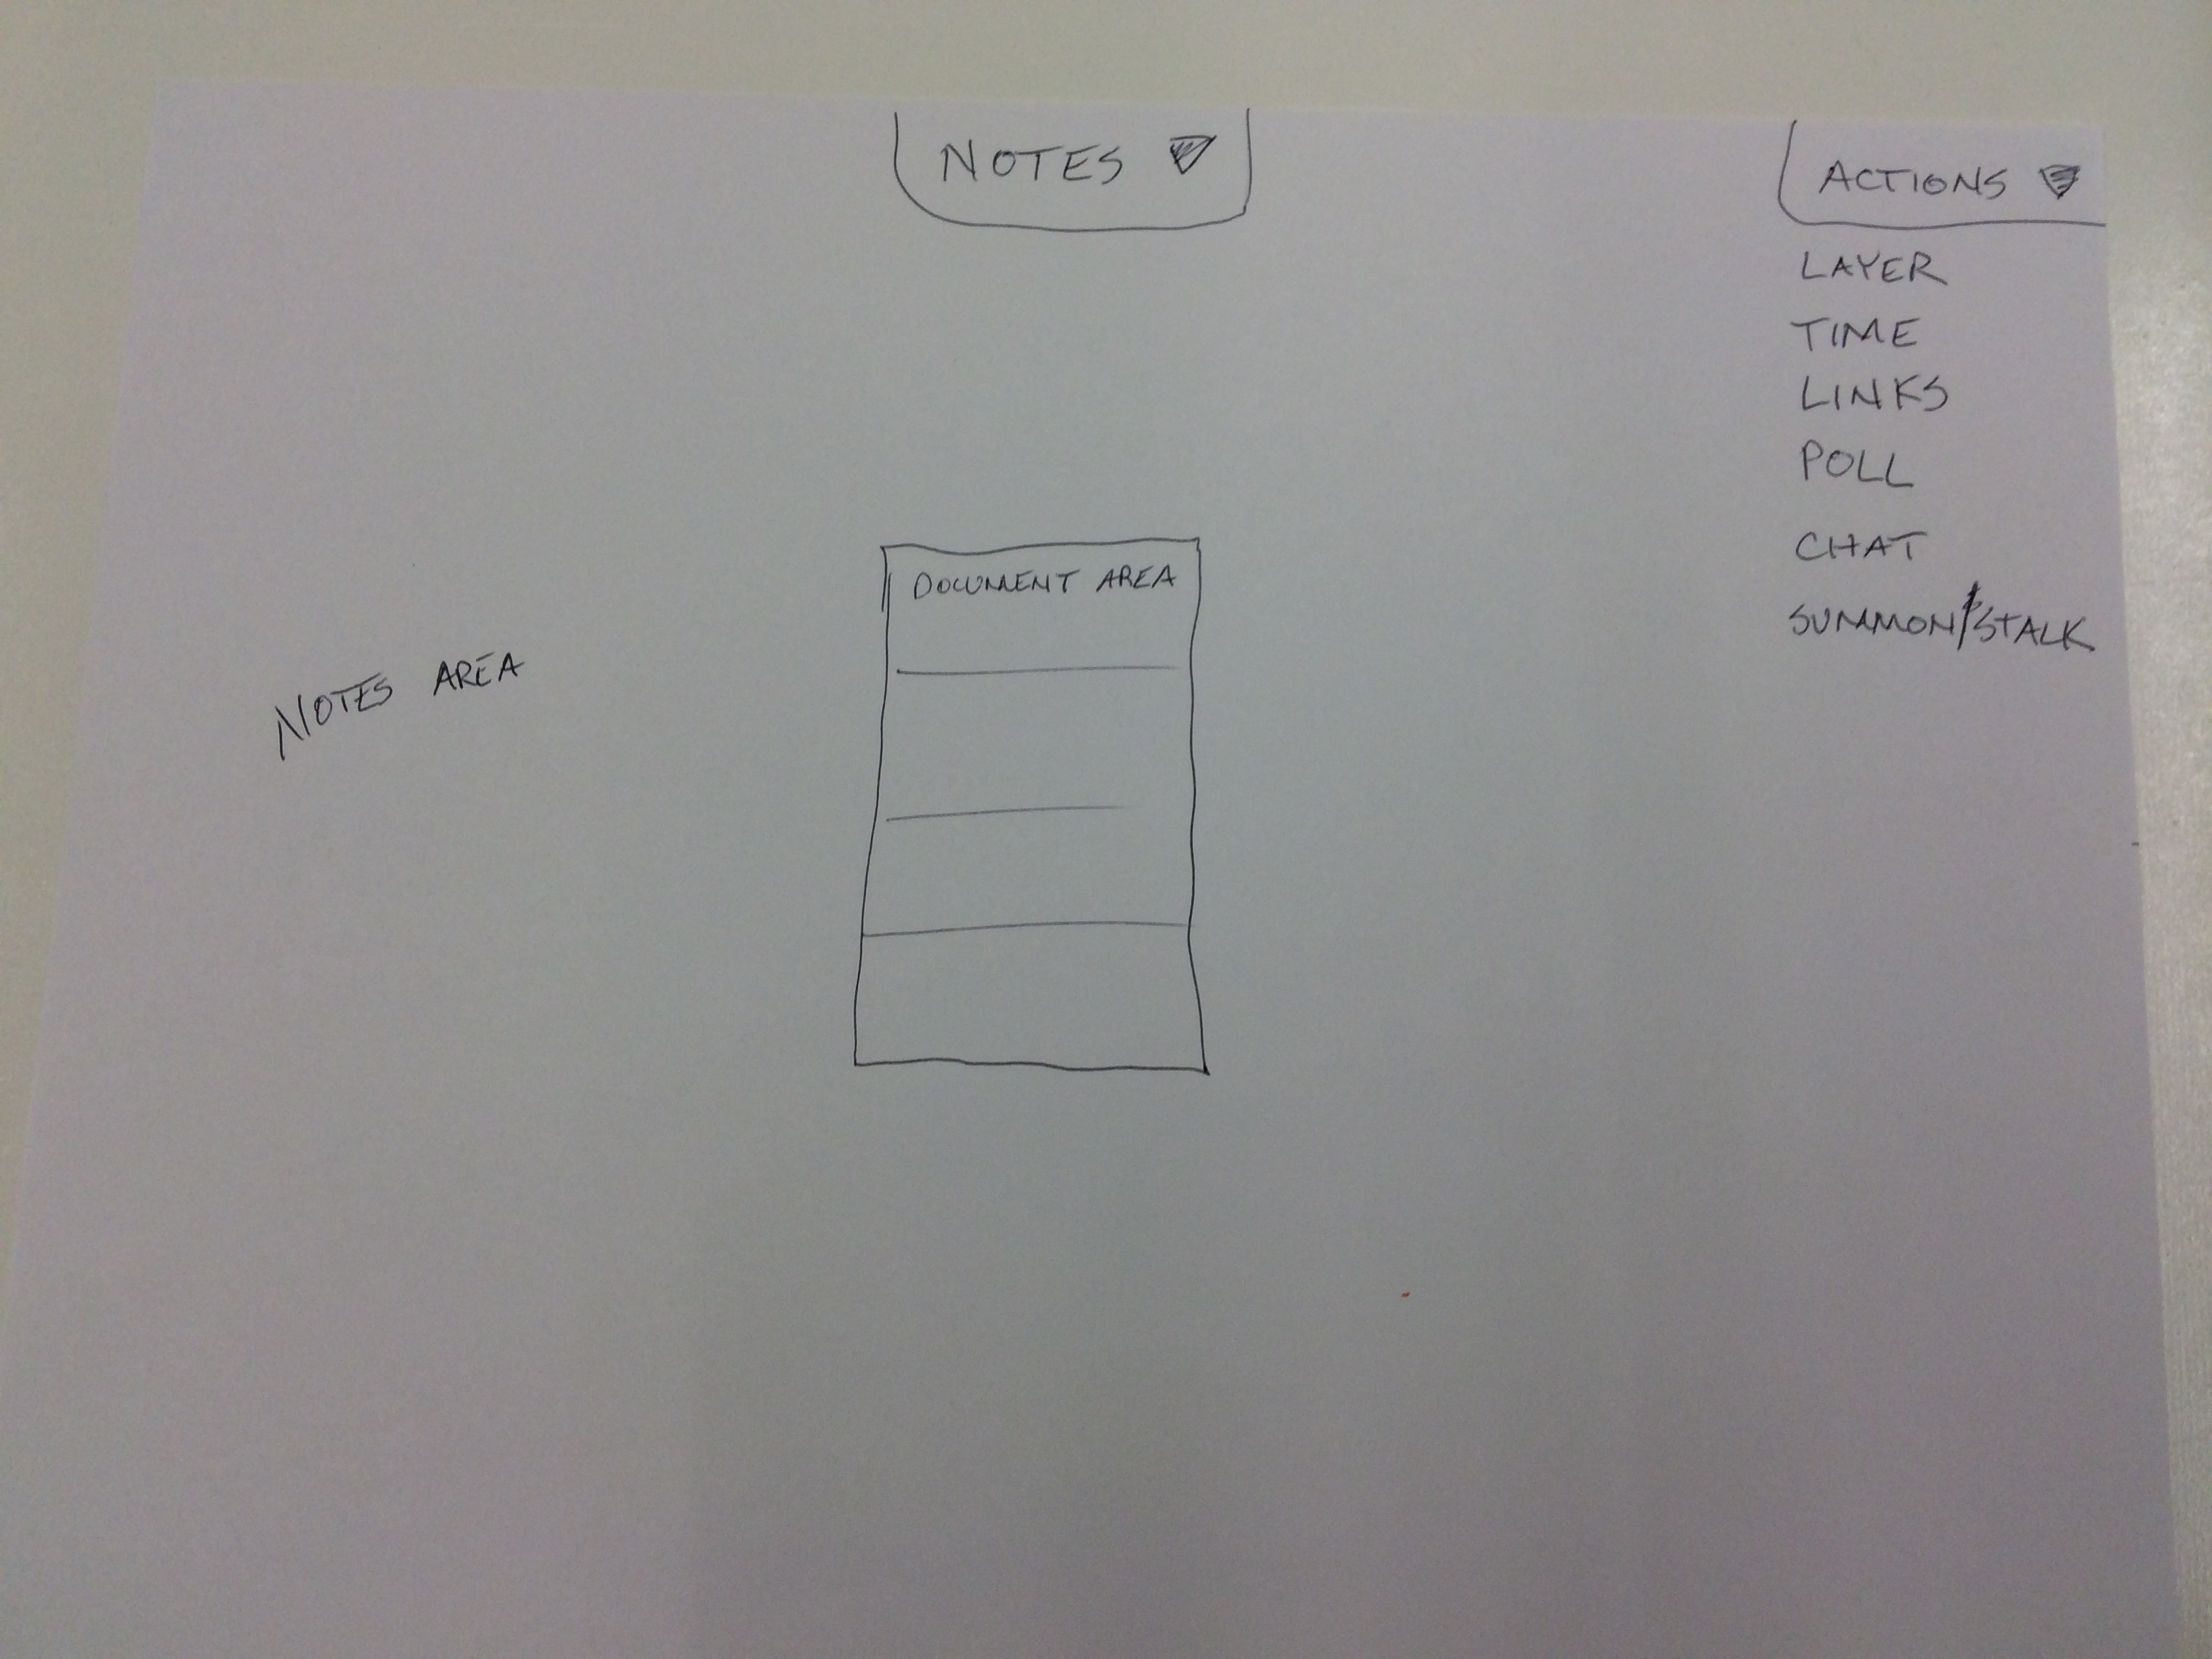 NOTES
ACTIONS
LAYER
TIME
LINKS
POLL
CHAT
SUMMON/STALK
DOCUMENT AREA
NOTES AREA